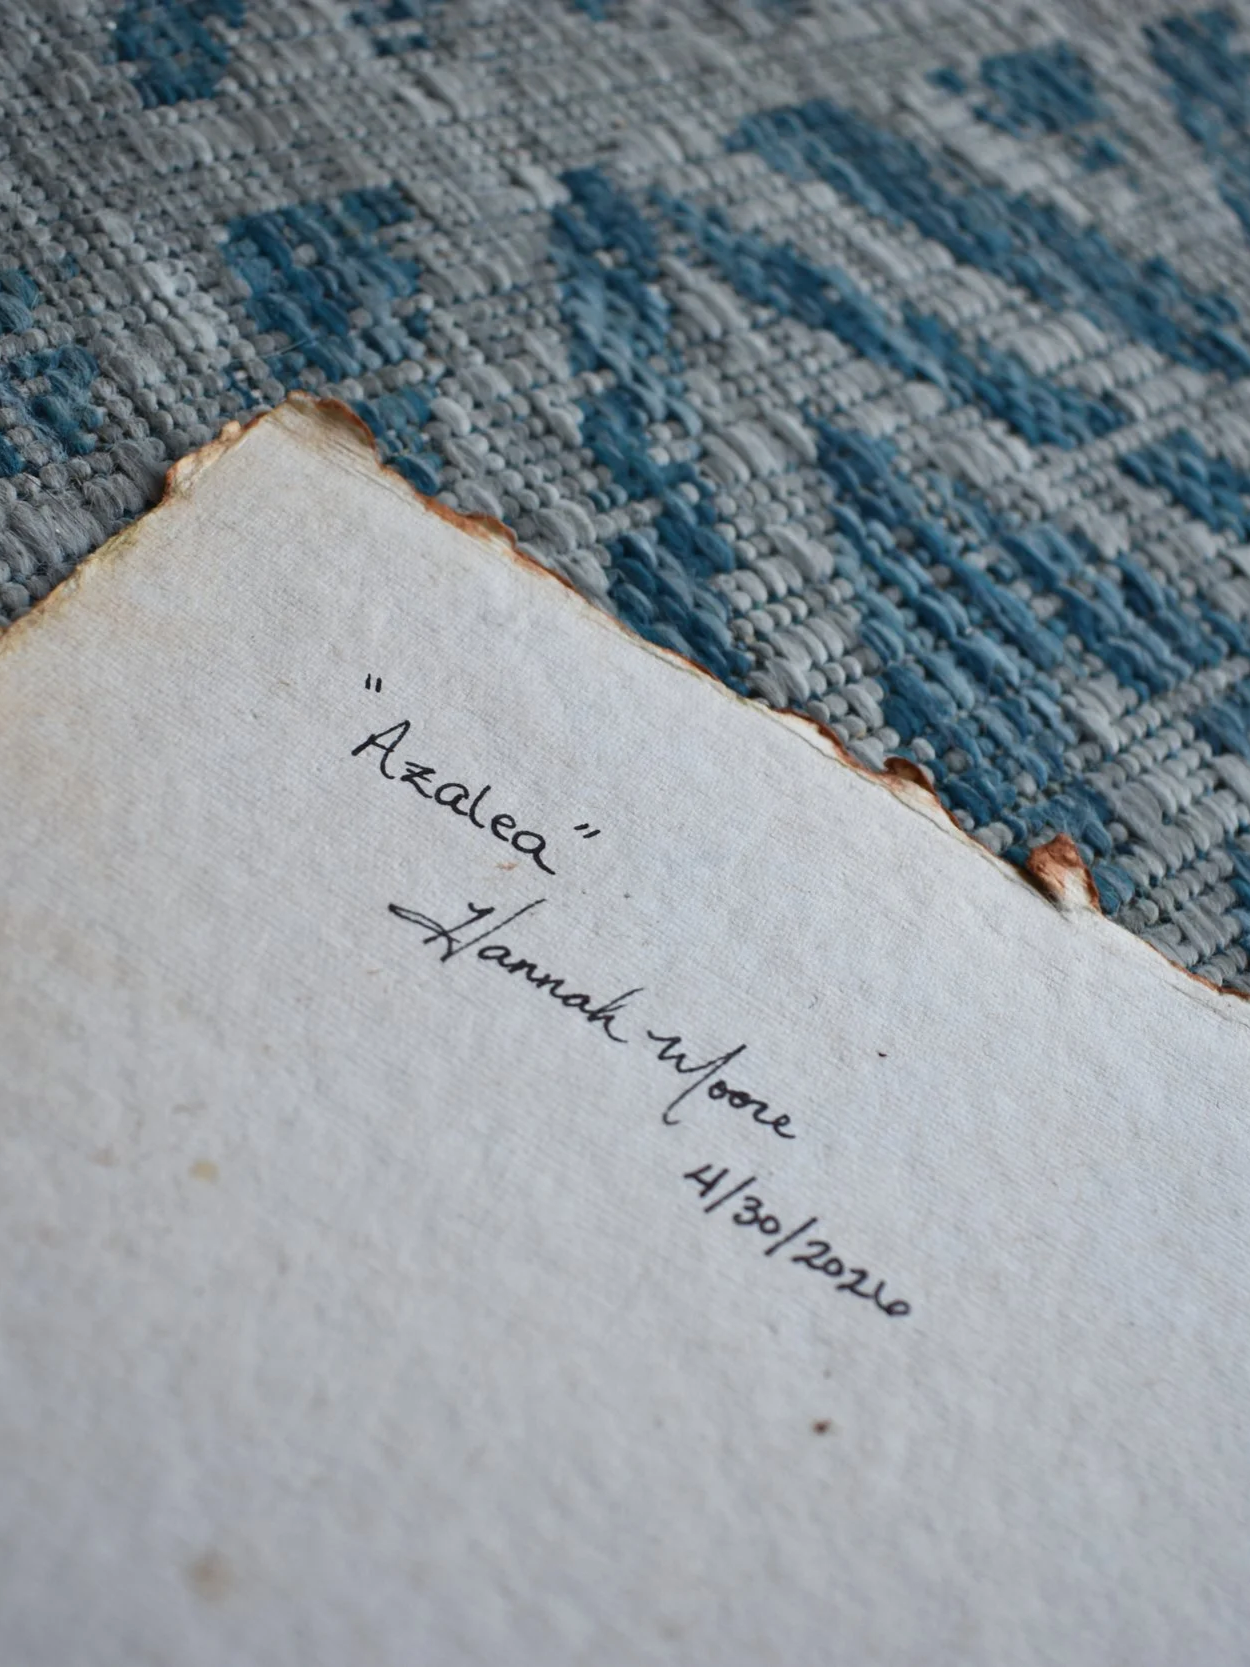 "Azalea"
Hannah Moore
4/30/2026